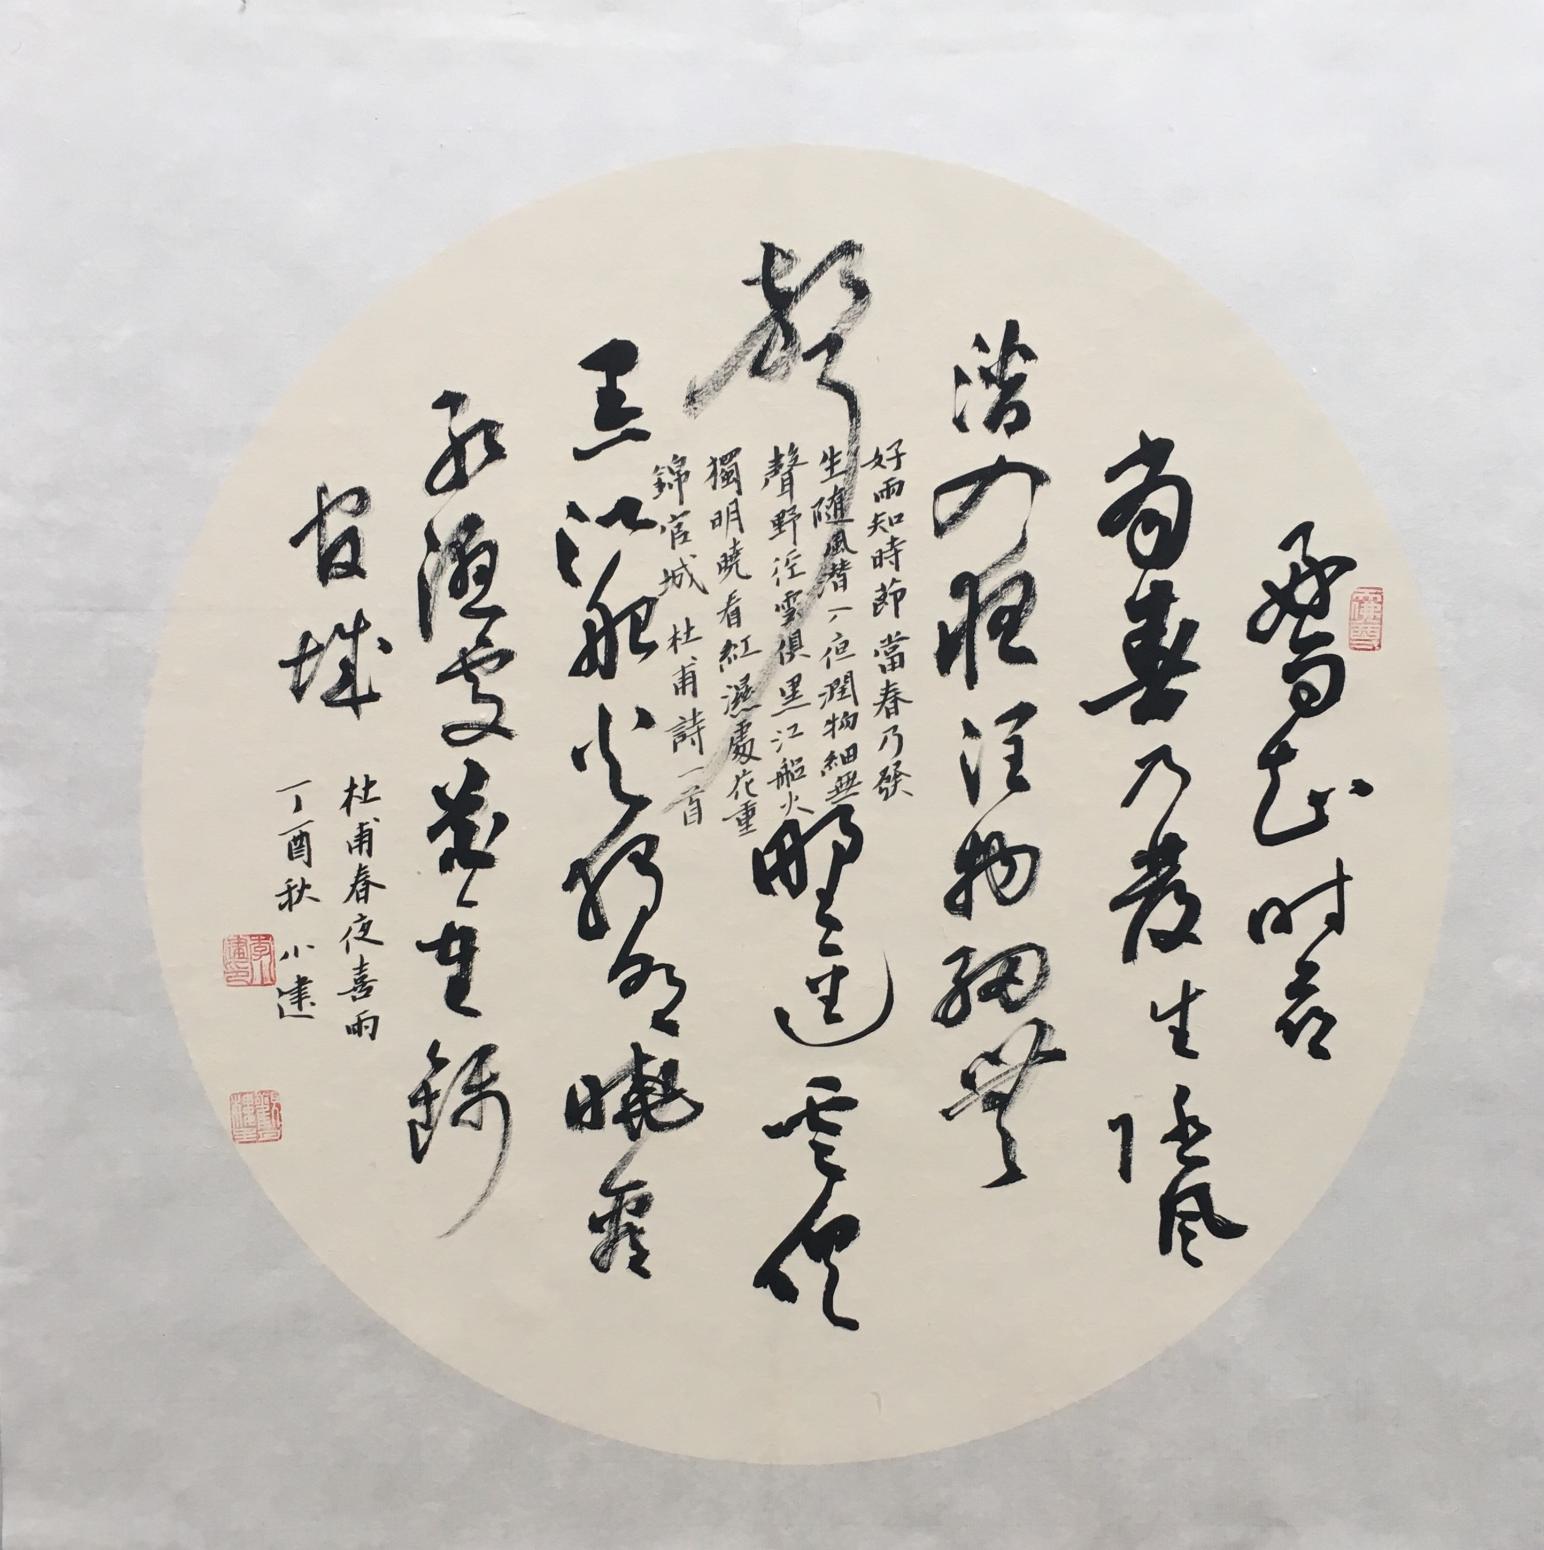 好雨知时节
当春乃发生随风
潜入夜润物细无
声
野径云俱
黑江船火独明晓看
红湿处花重锦
官城
好雨知時節當春乃發
生隨風潛入夜潤物細無
聲野徑雲俱黑江船火
獨明曉看紅濕處花重
錦官城 杜甫詩一首
杜甫春夜喜雨
丁酉秋 小建